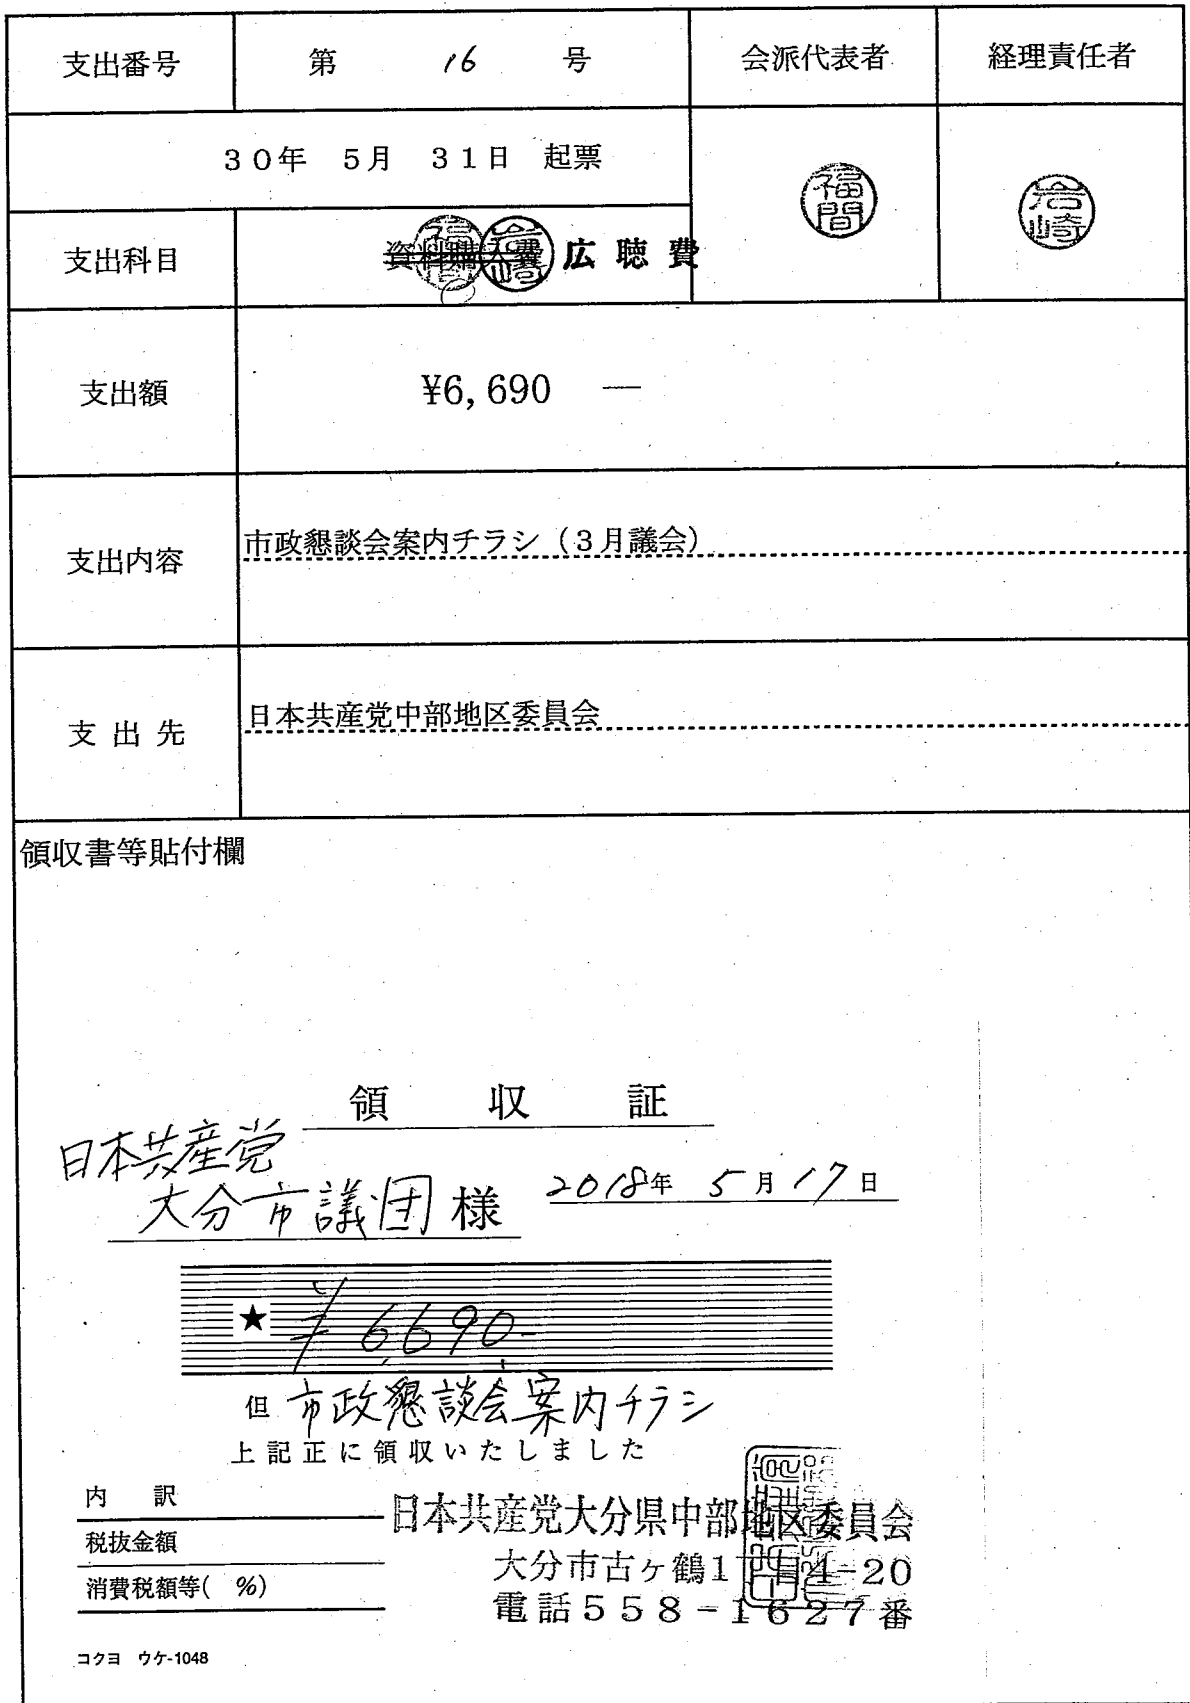 支出番号 第 16 号 会派代表者 経理責任者
30年 5月 31日 起票
福間
岩崎
支出科目 資料購入費 広聴費
福間 岩崎
支出額 ¥6,690 ―
支出内容 市政懇談会案内チラシ（3月議会）
支出先 日本共産党中部地区委員会
領収書等貼付欄
領収証
日本共産党
大分市議団 様 2018年 5月17日
★ ¥6,690-
但 市政懇談会案内チラシ
上記正に領収いたしました
内訳
税抜金額
消費税額等( %)
日本共産党大分県中部地区委員会
大分市古ヶ鶴1丁目4-20
電話558-1627番
コクヨ ウケ-1048